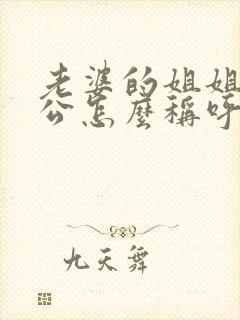 老婆的姐姐
公怎麼稱呼
九天舞